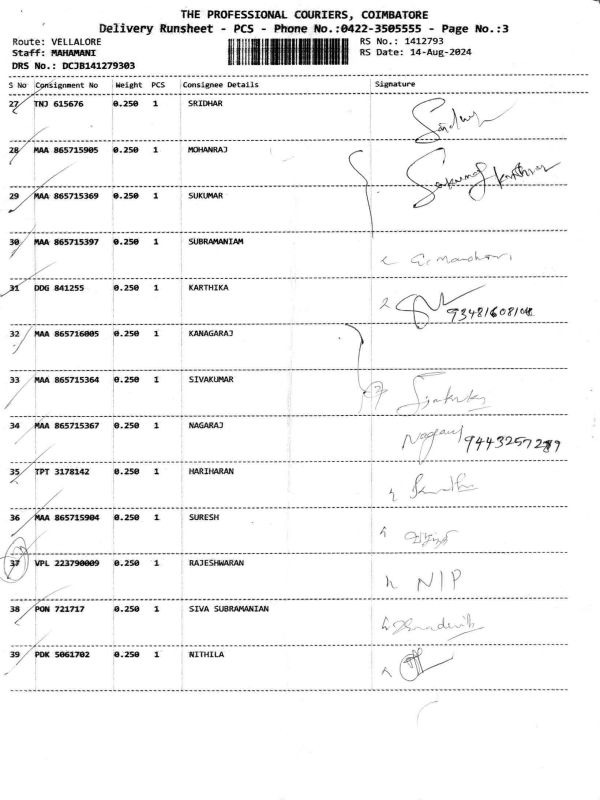 THE PROFESSIONAL COURIERS, COIMBATORE
Delivery Runsheet - PCS - Phone No.:0422-3505555 - Page No.:3
Route: VELLALORE RS No.: 1412793
Staff: MAHAMANI RS Date: 14-Aug-2024
DRS No.: DCJB141279303
S No Consignment No Weight PCS Consignee Details Signature
27 TNJ 615676 0.250 1 SRIDHAR
28 MAA 865715905 0.250 1 MOHANRAJ
29 MAA 865715369 0.250 1 SUKUMAR
30 MAA 865715397 0.250 1 SUBRAMANIAM
31 DDG 841255 0.250 1 KARTHIKA
32 MAA 865716005 0.250 1 KANAGARAJ
33 MAA 865715364 0.250 1 SIVAKUMAR
34 MAA 865715367 0.250 1 NAGARAJ Nagaraj
35 TPT 3178142 0.250 1 HARIHARAN
36 MAA 865715904 0.250 1 SURESH
37 VPL 223790009 0.250 1 RAJESHWARAN N/P
38 PON 721717 0.250 1 SIVA SUBRAMANIAN
39 PDK 5061702 0.250 1 NITHILA